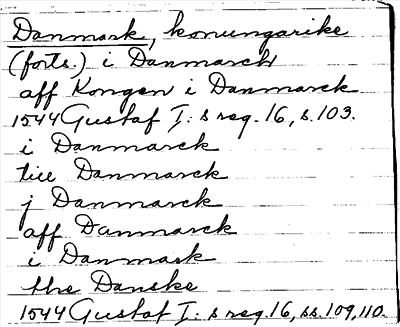 Danmark, konungarike
(forts.) i Danmarch
aff Kongen i Danmarck
1544 Gustaf I:s reg. 16, s. 103.
i Danmarck
till Danmarck
j Danmarck
aff Danmarck
i Danmark
the Danske
1544 Gustaf I:s reg. 16, ss. 109, 110.